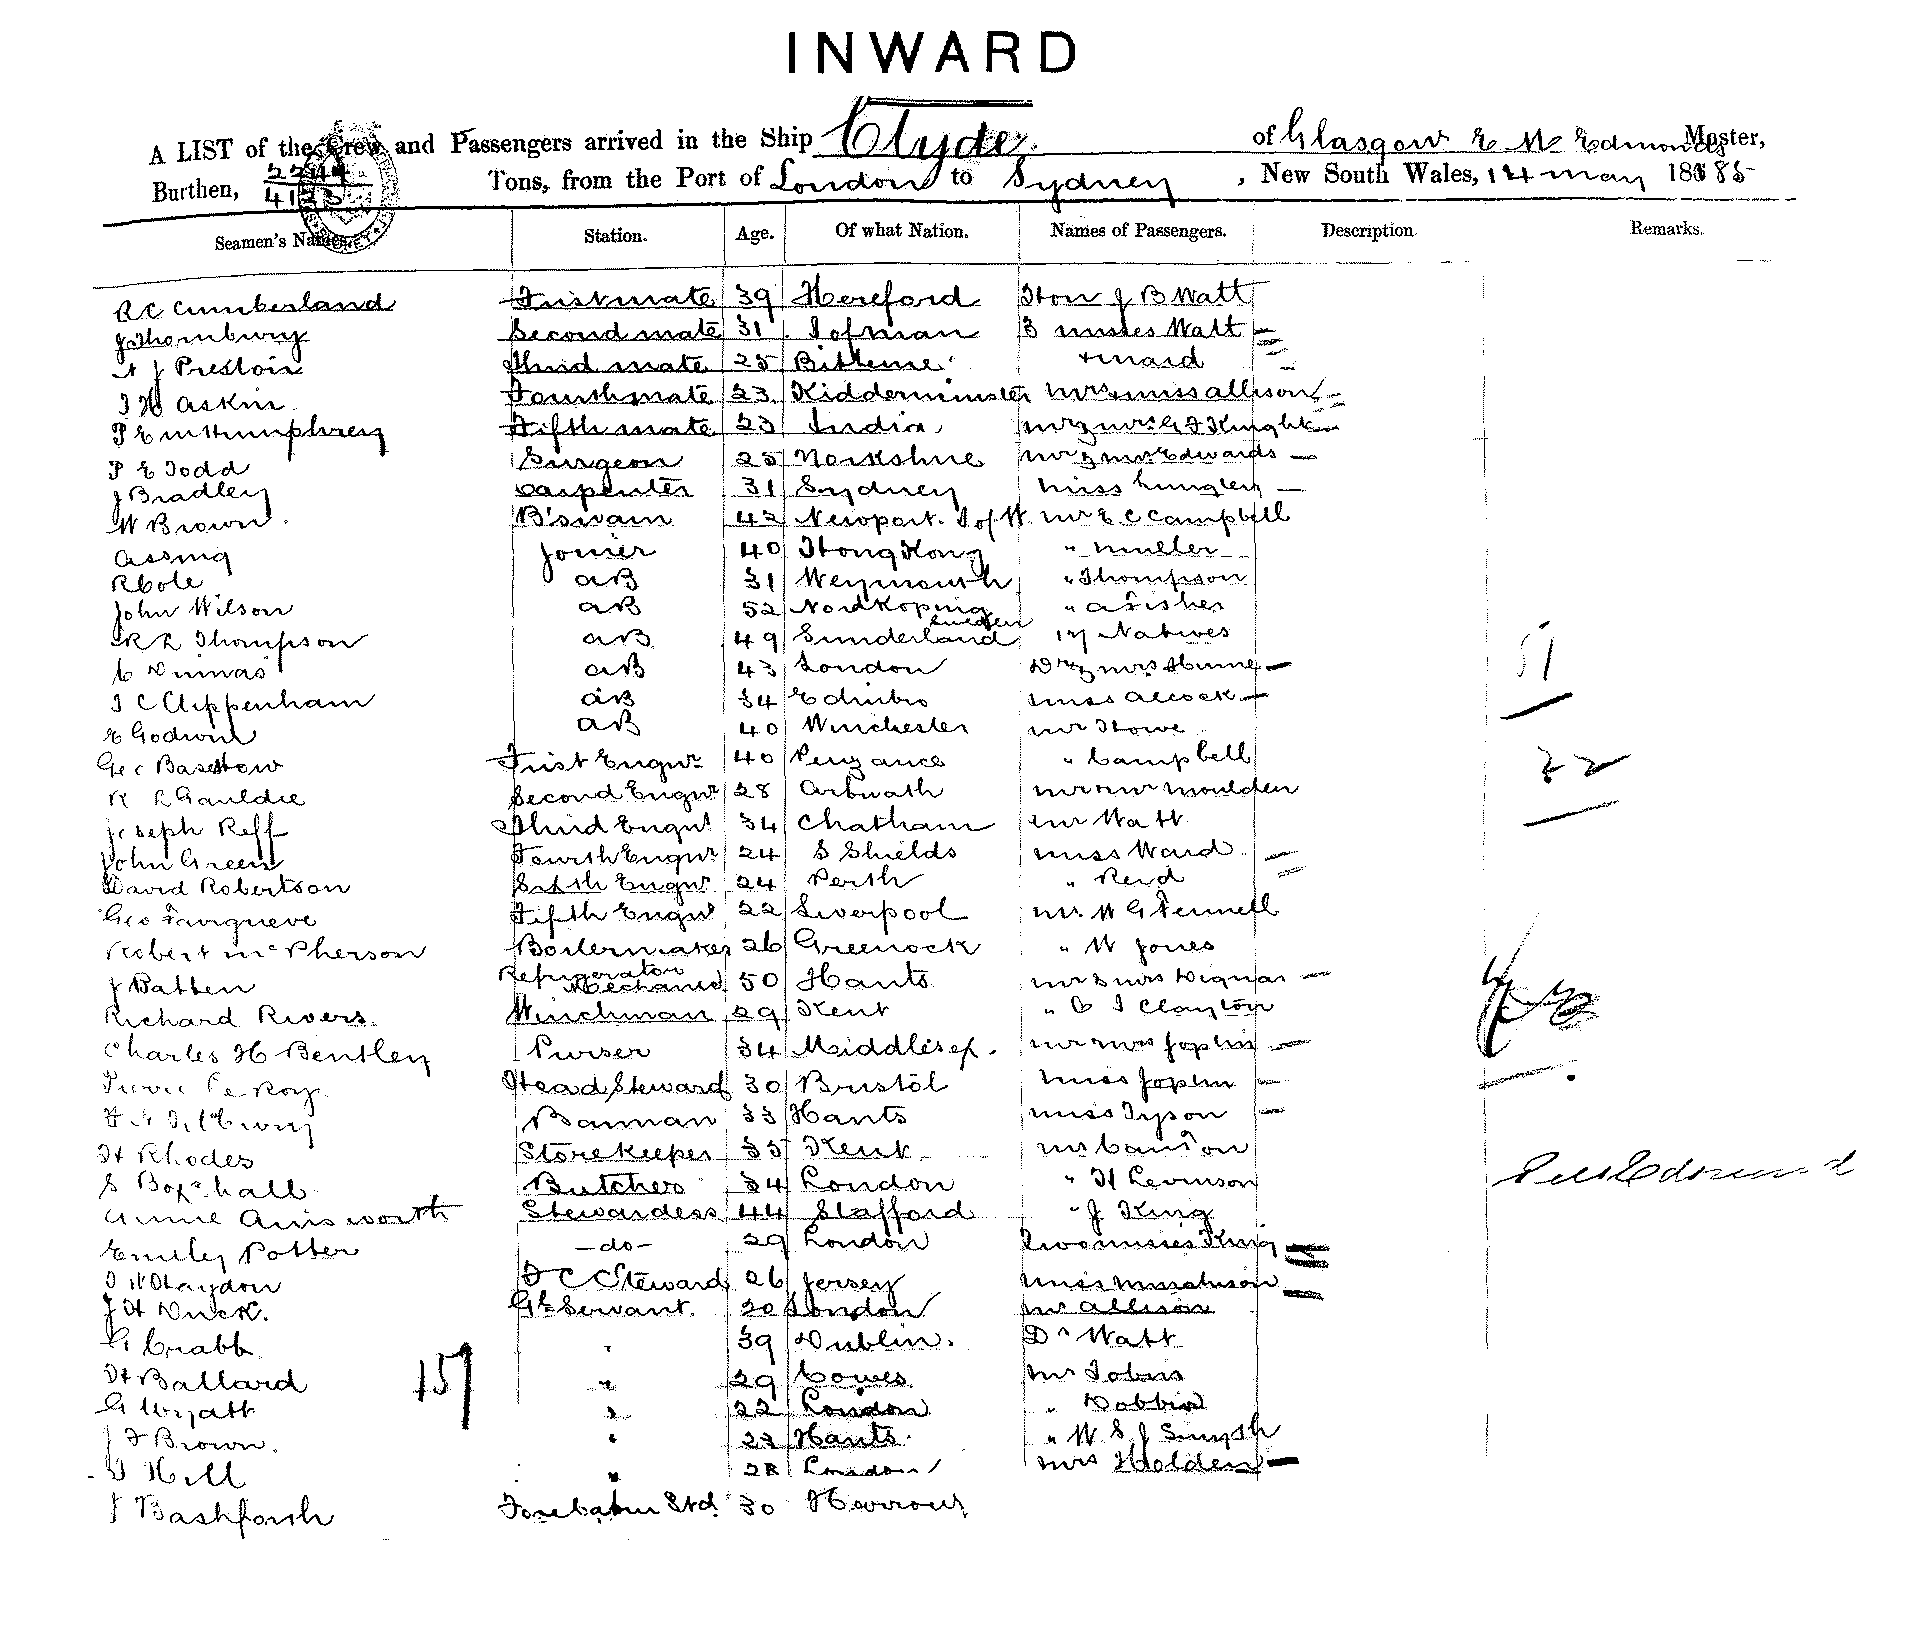 INWARD
A LIST of the Crew and Passengers arrived in the Ship Clyde of Glasgow E M Edmonds Master,
Burthen, 2244 4123 Tons, from the Port of London to Sydney, New South Wales, 14 May 1885
Seamen's Names. Station. Age. Of what Nation. Names of Passengers. Description. Remarks.
R C Cumberland First mate 39 Hereford Hon J B Watt
J Thornbury Second mate 31 I of man 3 misses Watt
J Preston Third mate 25 Bitterne + maid
Askin Fourth mate 23 Kidderminster mrs & miss allison
Humphrey Fifth mate 23 India mr & mrs G F Knight
P E Todd Surgeon 25 Yorkshire mr & mrs Edwards
J Bradley Carpenter 31 Sydney miss
W Brown B'swain 42 Newport. I of W mr E C Campbell
Assing Joiner 40 Hong Kong " muller
R Cole aB 31 Weymouth " Thompson
John Wilson aB 52 Nordkoping Sweden " a Fisher
R L Thompson aB 49 Sunderland 17 Natives
C aB 43 London Dr & mrs Hume
I C Clippenham aB 34 Edinbro miss Alcock
E Godwin aB 40 Winchester mr Howe
Geo Bastow First Engnr 40 Penzance " Campbell
R L Gauldie Second Engnr 28 Arbroath mr & mrs Moulden
Joseph Reff Third Engnr 34 Chatham mr Watt
John Green Fourth Engnr 24 S Shields miss Ward
David Robertson Engnr 24 Perth " Reid
Geo Fifth Engnr 22 Liverpool mr W G Fennell
Robert McPherson Boilermaker 26 Greenock " W Jones
J Batten Refrigerator Mechanic 50 Hants mr & mrs
Richard Rivers Winchman 29 Kent " C I Clayton
Charles H Bentley Purser 34 Middlesex. mr & mrs Joplin
Le Roy Head Steward 30 Bristol miss Joplin
Barman 33 Hants miss Tyson
H Rhodes Storekeeper 35 Kent mr
S Boxhall Butcher 34 London " H Levinson
Annie Ainsworth Stewardess 44 Stafford " J King
Emiley Potter —do— 29 London Two misses King
Haydon F C Steward 26 Jersey miss
J H Duck. Gl Servant. 20 London mr Allison
G Crabb " 39 Dublin. Dr Watt
H Ballard " 29 Cowes mr
G Wyatt " 22 London " Dobbin
J F Brown. " 22 Hants " W S J Smyth
Hill " 28 London mrs Holden
J Bashforth Forecabin Std 30 Harrow
157
51
22